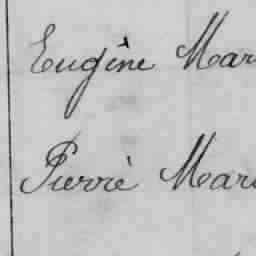 Eugène Mar
Pierre Mar